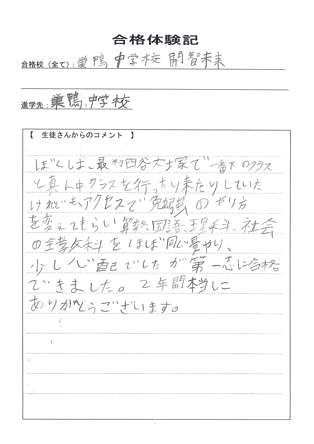 合格体験記
合格校（全て）: 巣鴨中学校 開智未来
進学先: 巣鴨中学校
【 生徒さんからのコメント 】
ぼくは、最初四谷大塚で一番下のクラス
と真ん中クラスを行ったり来たりしていた
けれども、アクセスで勉強のやり方
を変えてもらい算数、国語、理科、社会
の全教科をほぼ同じ量やり、
少し心配でしたが第一志に合格
できました。2年間本当に
ありがとうございます。